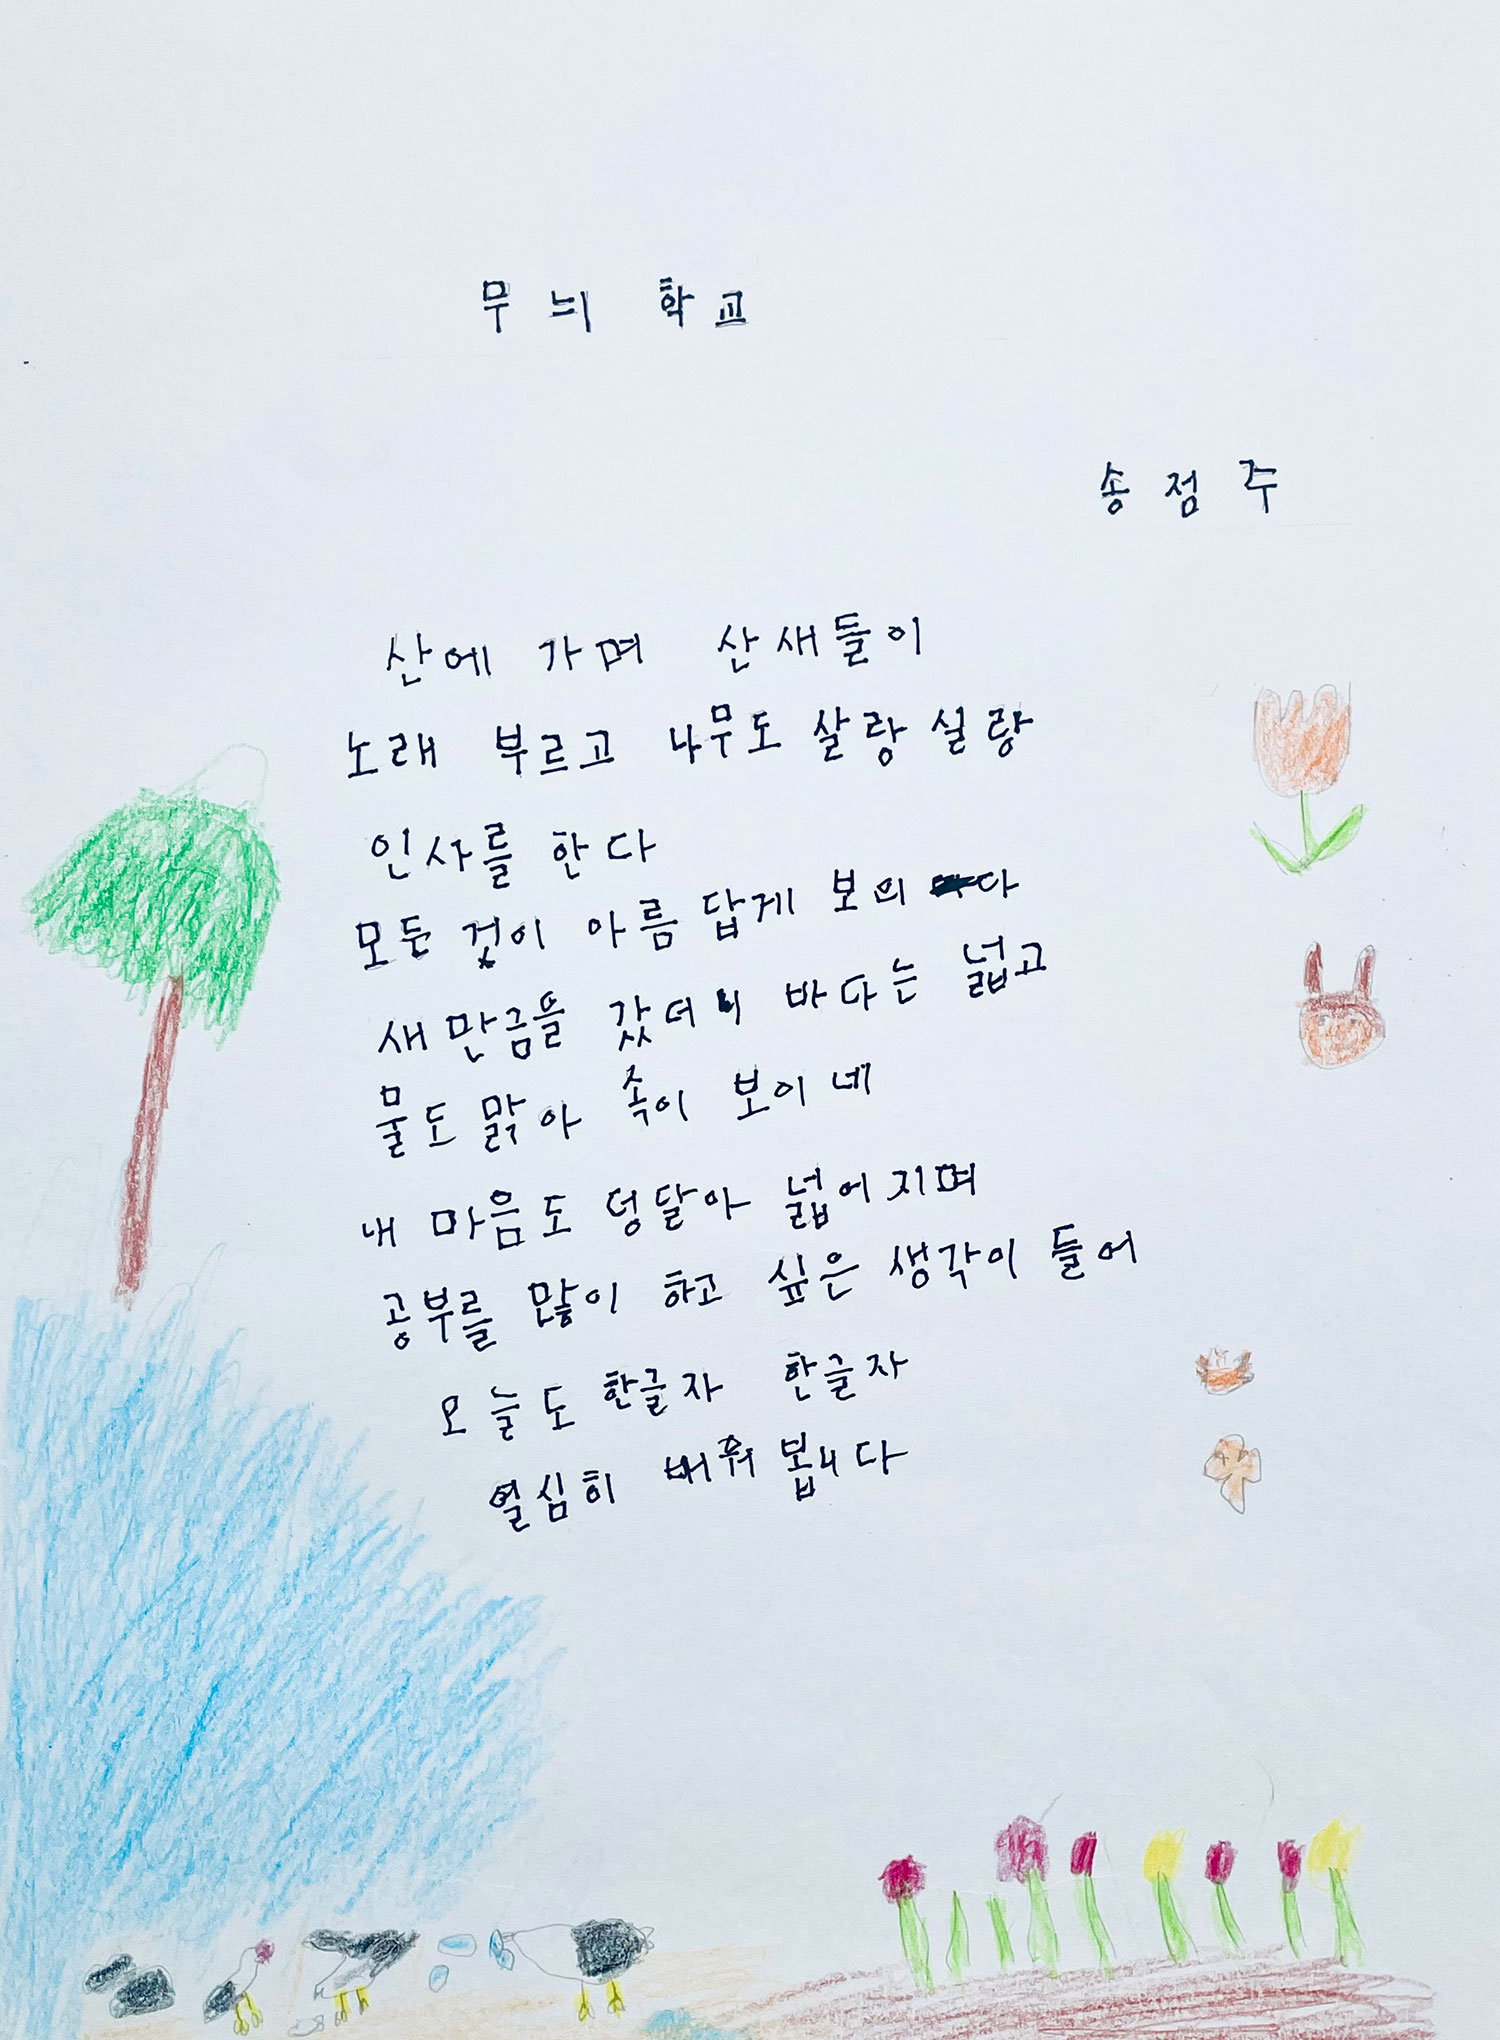 무늬 학교
송점주
산에 가며 산새들이
노래 부르고 나무도 살랑실랑
인사를 한다
모든 것이 아름답게 보의다
새만금을 갔더니 바다는 넓고
물도 맑아 속이 보이네
내 마음도 덩달아 넓어지며
공부를 많이 하고 싶은 생각이 들어
오늘도 한글자 한글자
열심히 배워 봅니다